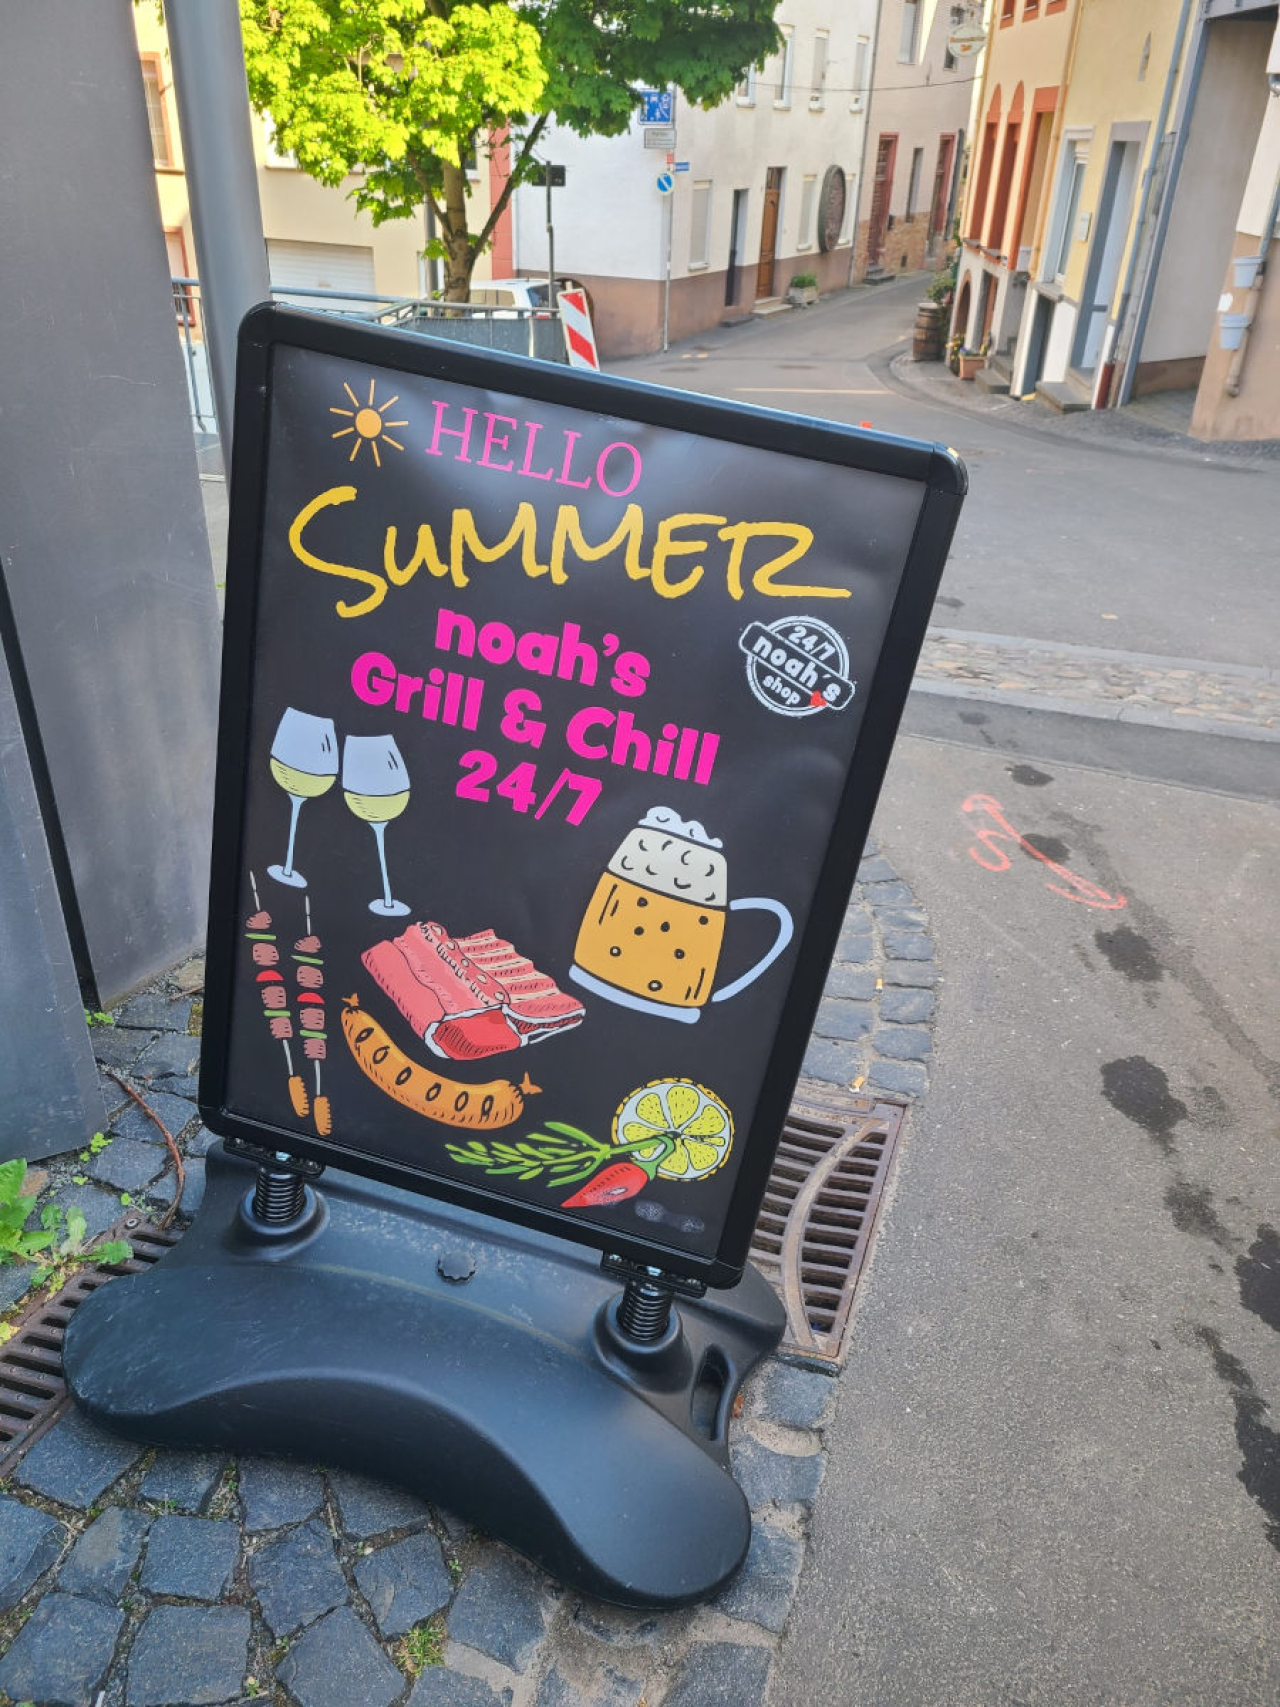 HELLO
SUMMER
noah's
Grill & Chill
24/7
24/7
noah's
shop